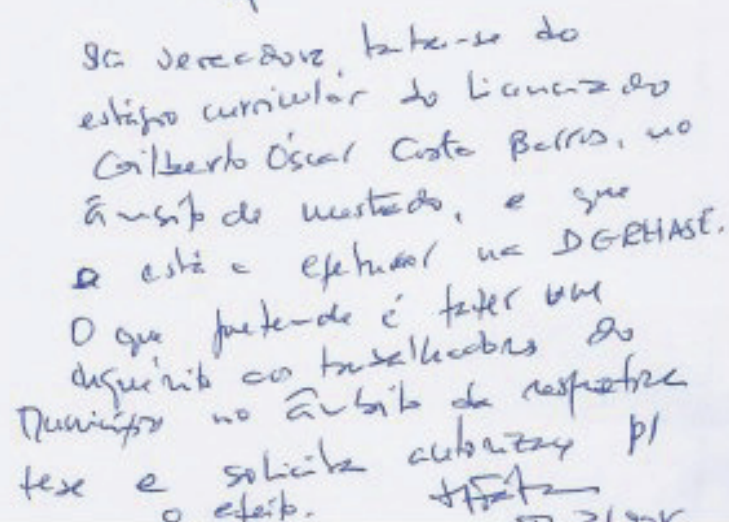 Sra Vereadora, trata-se do
estágio curricular do Licenciado
Gilberto Óscar Costa Barros, no
âmbito de mestrado, e que
o está a efetuar na DGRHASE.
O que pretende é fazer um
inquérito aos trabalhadores do
Município no âmbito da respetiva
tese e solicita autorização p/
o efeito.